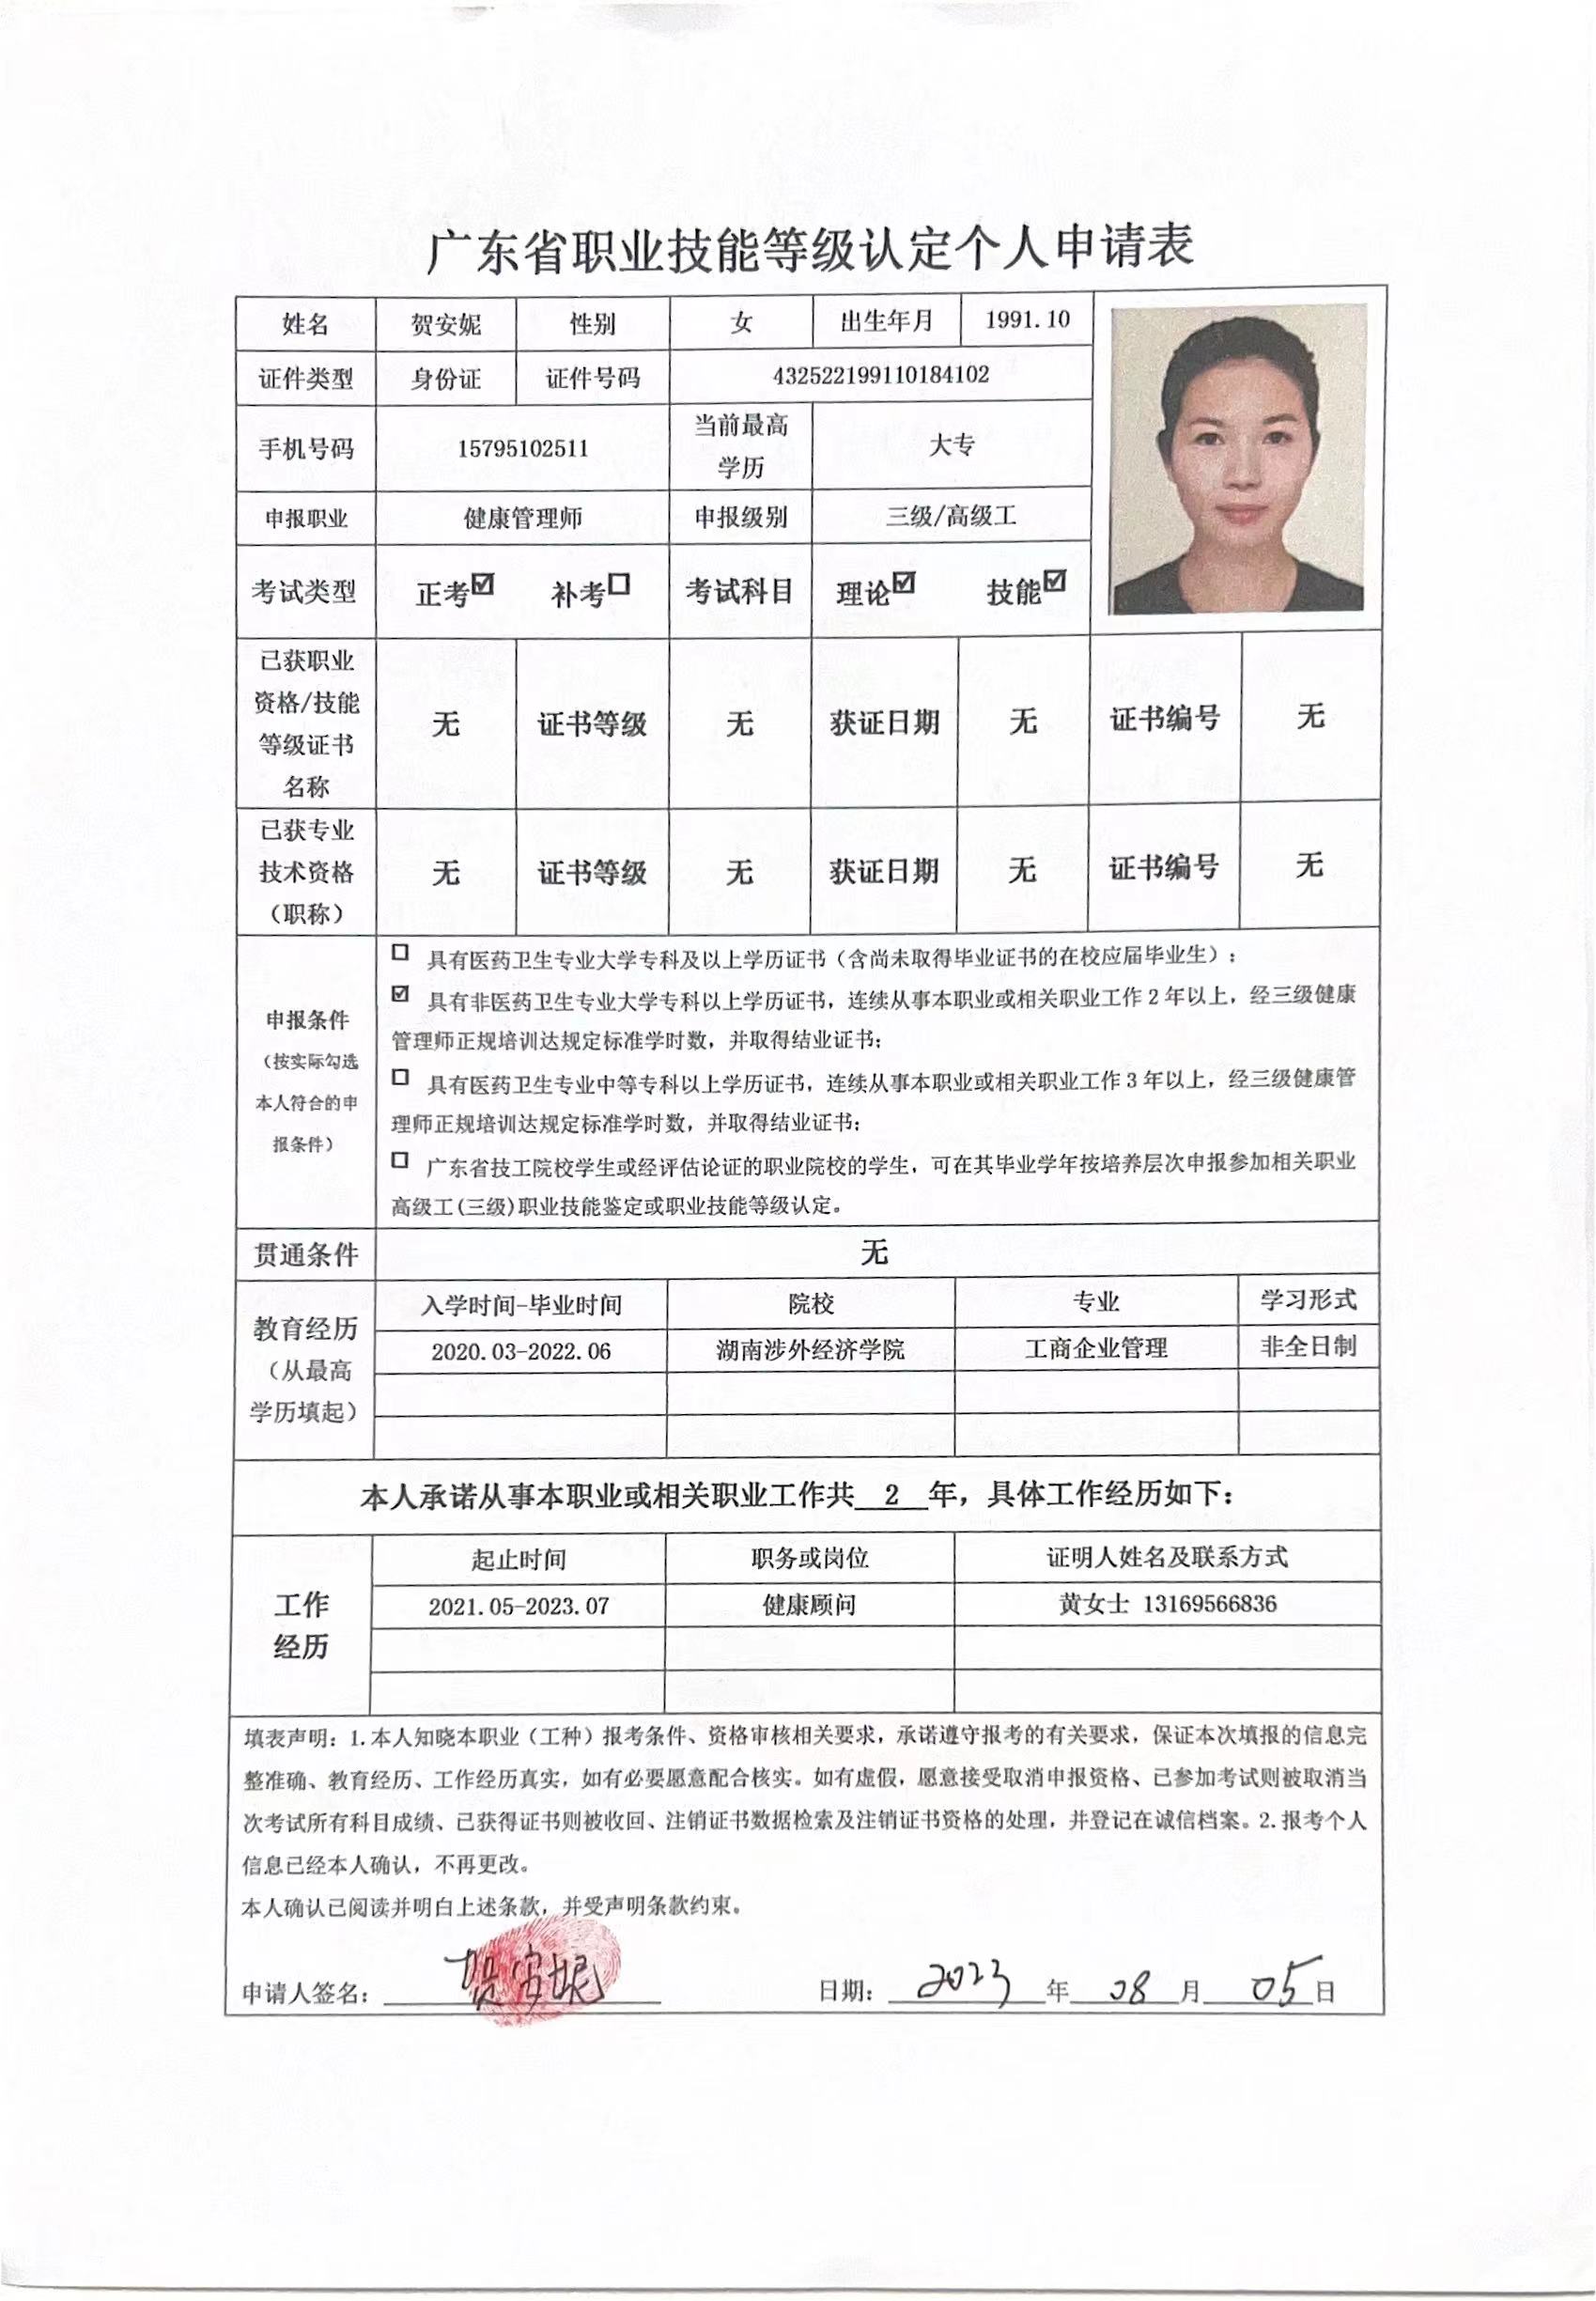 广东省职业技能等级认定个人申请表
姓名 贺安妮 性别 女 出生年月 1991.10
证件类型 身份证 证件号码 432522199110184102
手机号码 15795102511 当前最高学历 大专
申报职业 健康管理师 申报级别 三级/高级工
考试类型 正考☑ 补考☐ 考试科目 理论☑ 技能☑
已获职业资格/技能等级证书名称 无 证书等级 无 获证日期 无 证书编号 无
已获专业技术资格（职称） 无 证书等级 无 获证日期 无 证书编号 无
申报条件
（按实际勾选
本人符合的申
报条件）
☐ 具有医药卫生专业大学专科及以上学历证书（含尚未取得毕业证书的在校应届毕业生）；
☑ 具有非医药卫生专业大学专科以上学历证书，连续从事本职业或相关职业工作2年以上，经三级健康
管理师正规培训达规定标准学时数，并取得结业证书；
☐ 具有医药卫生专业中等专科以上学历证书，连续从事本职业或相关职业工作3年以上，经三级健康管
理师正规培训达规定标准学时数，并取得结业证书；
☐ 广东省技工院校学生或经评估论证的职业院校的学生，可在其毕业学年按培养层次申报参加相关职业
高级工(三级)职业技能鉴定或职业技能等级认定。
贯通条件 无
教育经历
（从最高
学历填起）
入学时间-毕业时间 院校 专业 学习形式
2020.03-2022.06 湖南涉外经济学院 工商企业管理 非全日制
本人承诺从事本职业或相关职业工作共 2 年，具体工作经历如下：
工作
经历
起止时间 职务或岗位 证明人姓名及联系方式
2021.05-2023.07 健康顾问 黄女士 13169566836
填表声明：1.本人知晓本职业（工种）报考条件、资格审核相关要求，承诺遵守报考的有关要求，保证本次填报的信息完
整准确、教育经历、工作经历真实，如有必要愿意配合核实。如有虚假，愿意接受取消申报资格、已参加考试则被取消当
次考试所有科目成绩、已获得证书则被收回、注销证书数据检索及注销证书资格的处理，并登记在诚信档案。2.报考个人
信息已经本人确认，不再更改。
本人确认已阅读并明白上述条款，并受声明条款约束。
申请人签名：贺安妮 日期：2023年08月05日